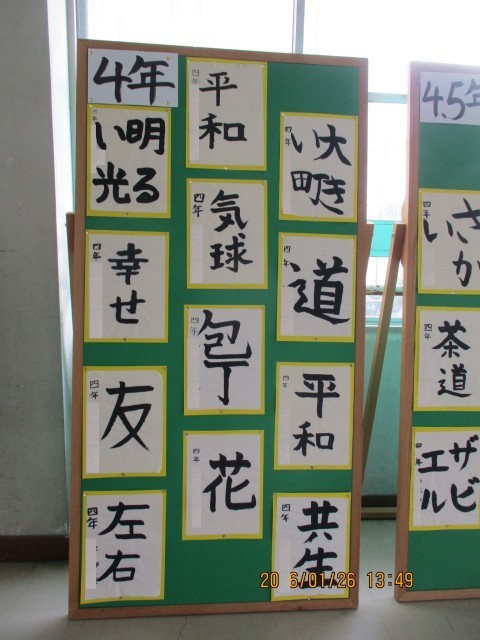 4年
四年
明る
い光
四年
幸せ
四年
友
四年
左右
四年
平和
四年
気球
四年
包丁
四年
花
四年
大き
い町
四年
道
四年
平和
四年
共生
4.5年
四年
さか
い
四年
茶道
ザビ
エル
13:49